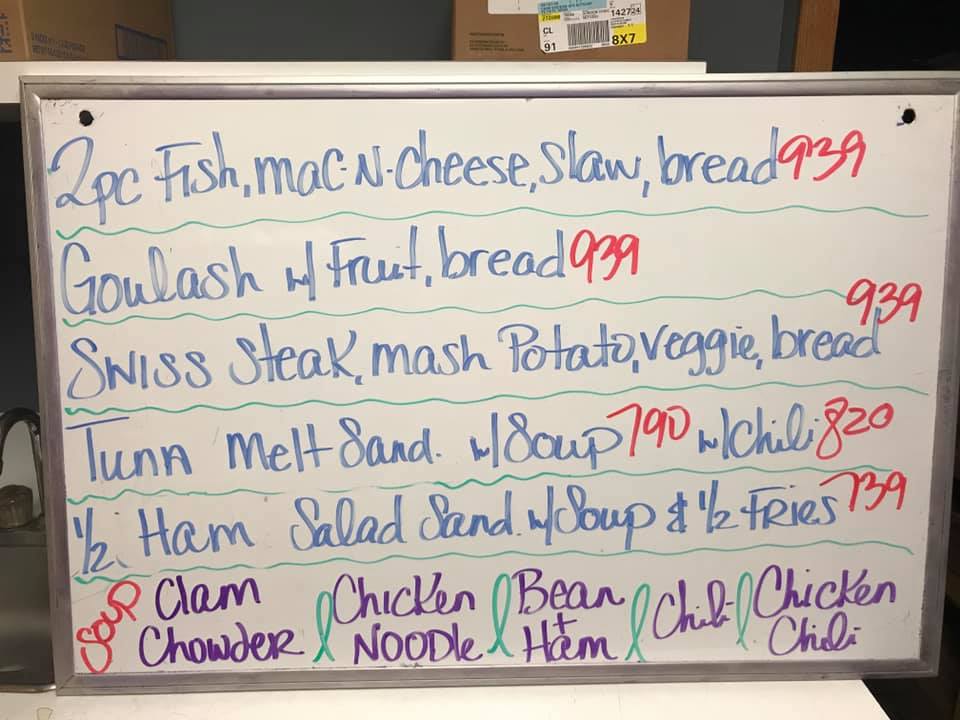 142724
CL
91
8X7
2pc Fish, mac-N-Cheese, Slaw, bread 939
Goulash w/ Fruit, bread 939
Swiss Steak, mash Potato, Veggie, bread 939
Tuna Melt Sand. w/Soup 790 w/Chili 820
1/2 Ham Salad Sand. w/Soup & 1/2 FRIES 739
Soup Clam Chowder
Chicken NOODLe
Bean + Ham
Chili
Chicken Chili